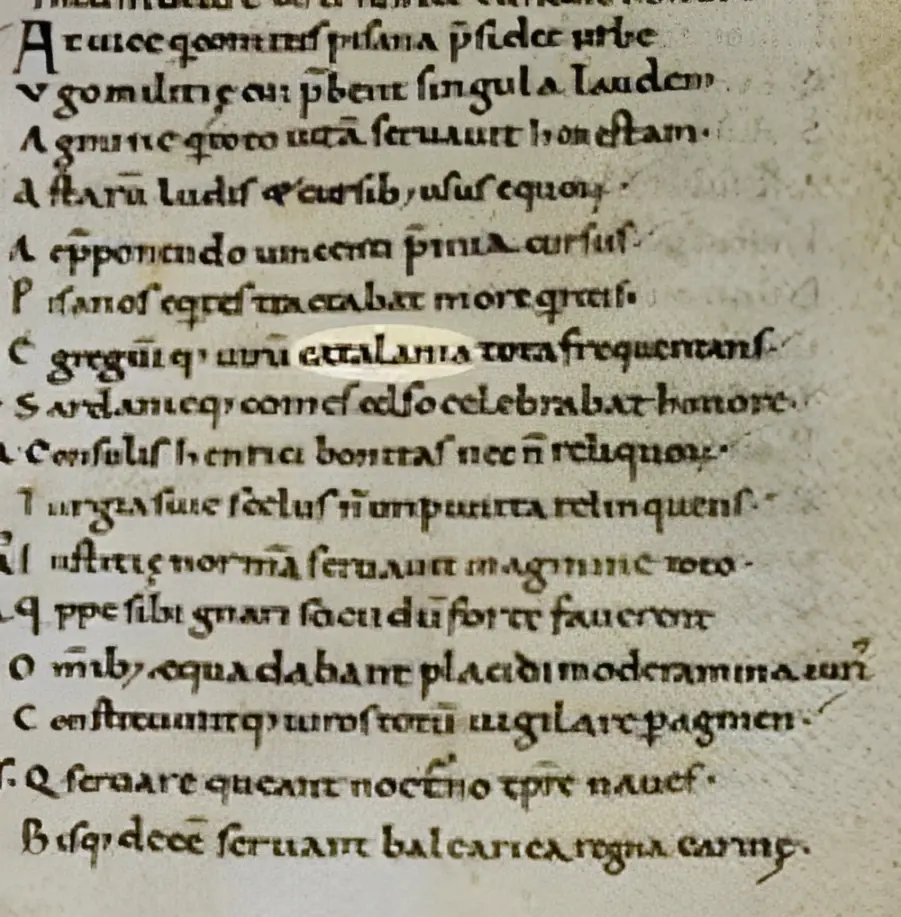 At uice q̄ comites pisana p̄sidet urbe
Vgo militię cui p̄bent singula laudem
Agmine q̄ toto uitā seruauit honestam.
Astarū ludis & cursib; usus equoꝝ.
Ac p̄ponendo uincenti p̄mia cursus.
Pisanos eq̇tes tractabat more q̇ritis.
Egregiū q; uirū catalania tota frequentans.
Sardanieq; comes celso celebrabat honore.
Consulis henrici bonitas nec n̄ reliquoꝝ.
Iurgia siue scelus n̄ inpunita relinquens.
Iustitię normā seruauit in agmine toto.
Qppe sibi gnari socii dū forte fauerent
Om̄ib; æqua dabant placidi moderamina iuri
Constituuntq; uiros totū uigilare ꝑ agmen.
Q seruare queant noct̄no tp̄re naues.
Bisq; decē seruant balearica regna carinę.